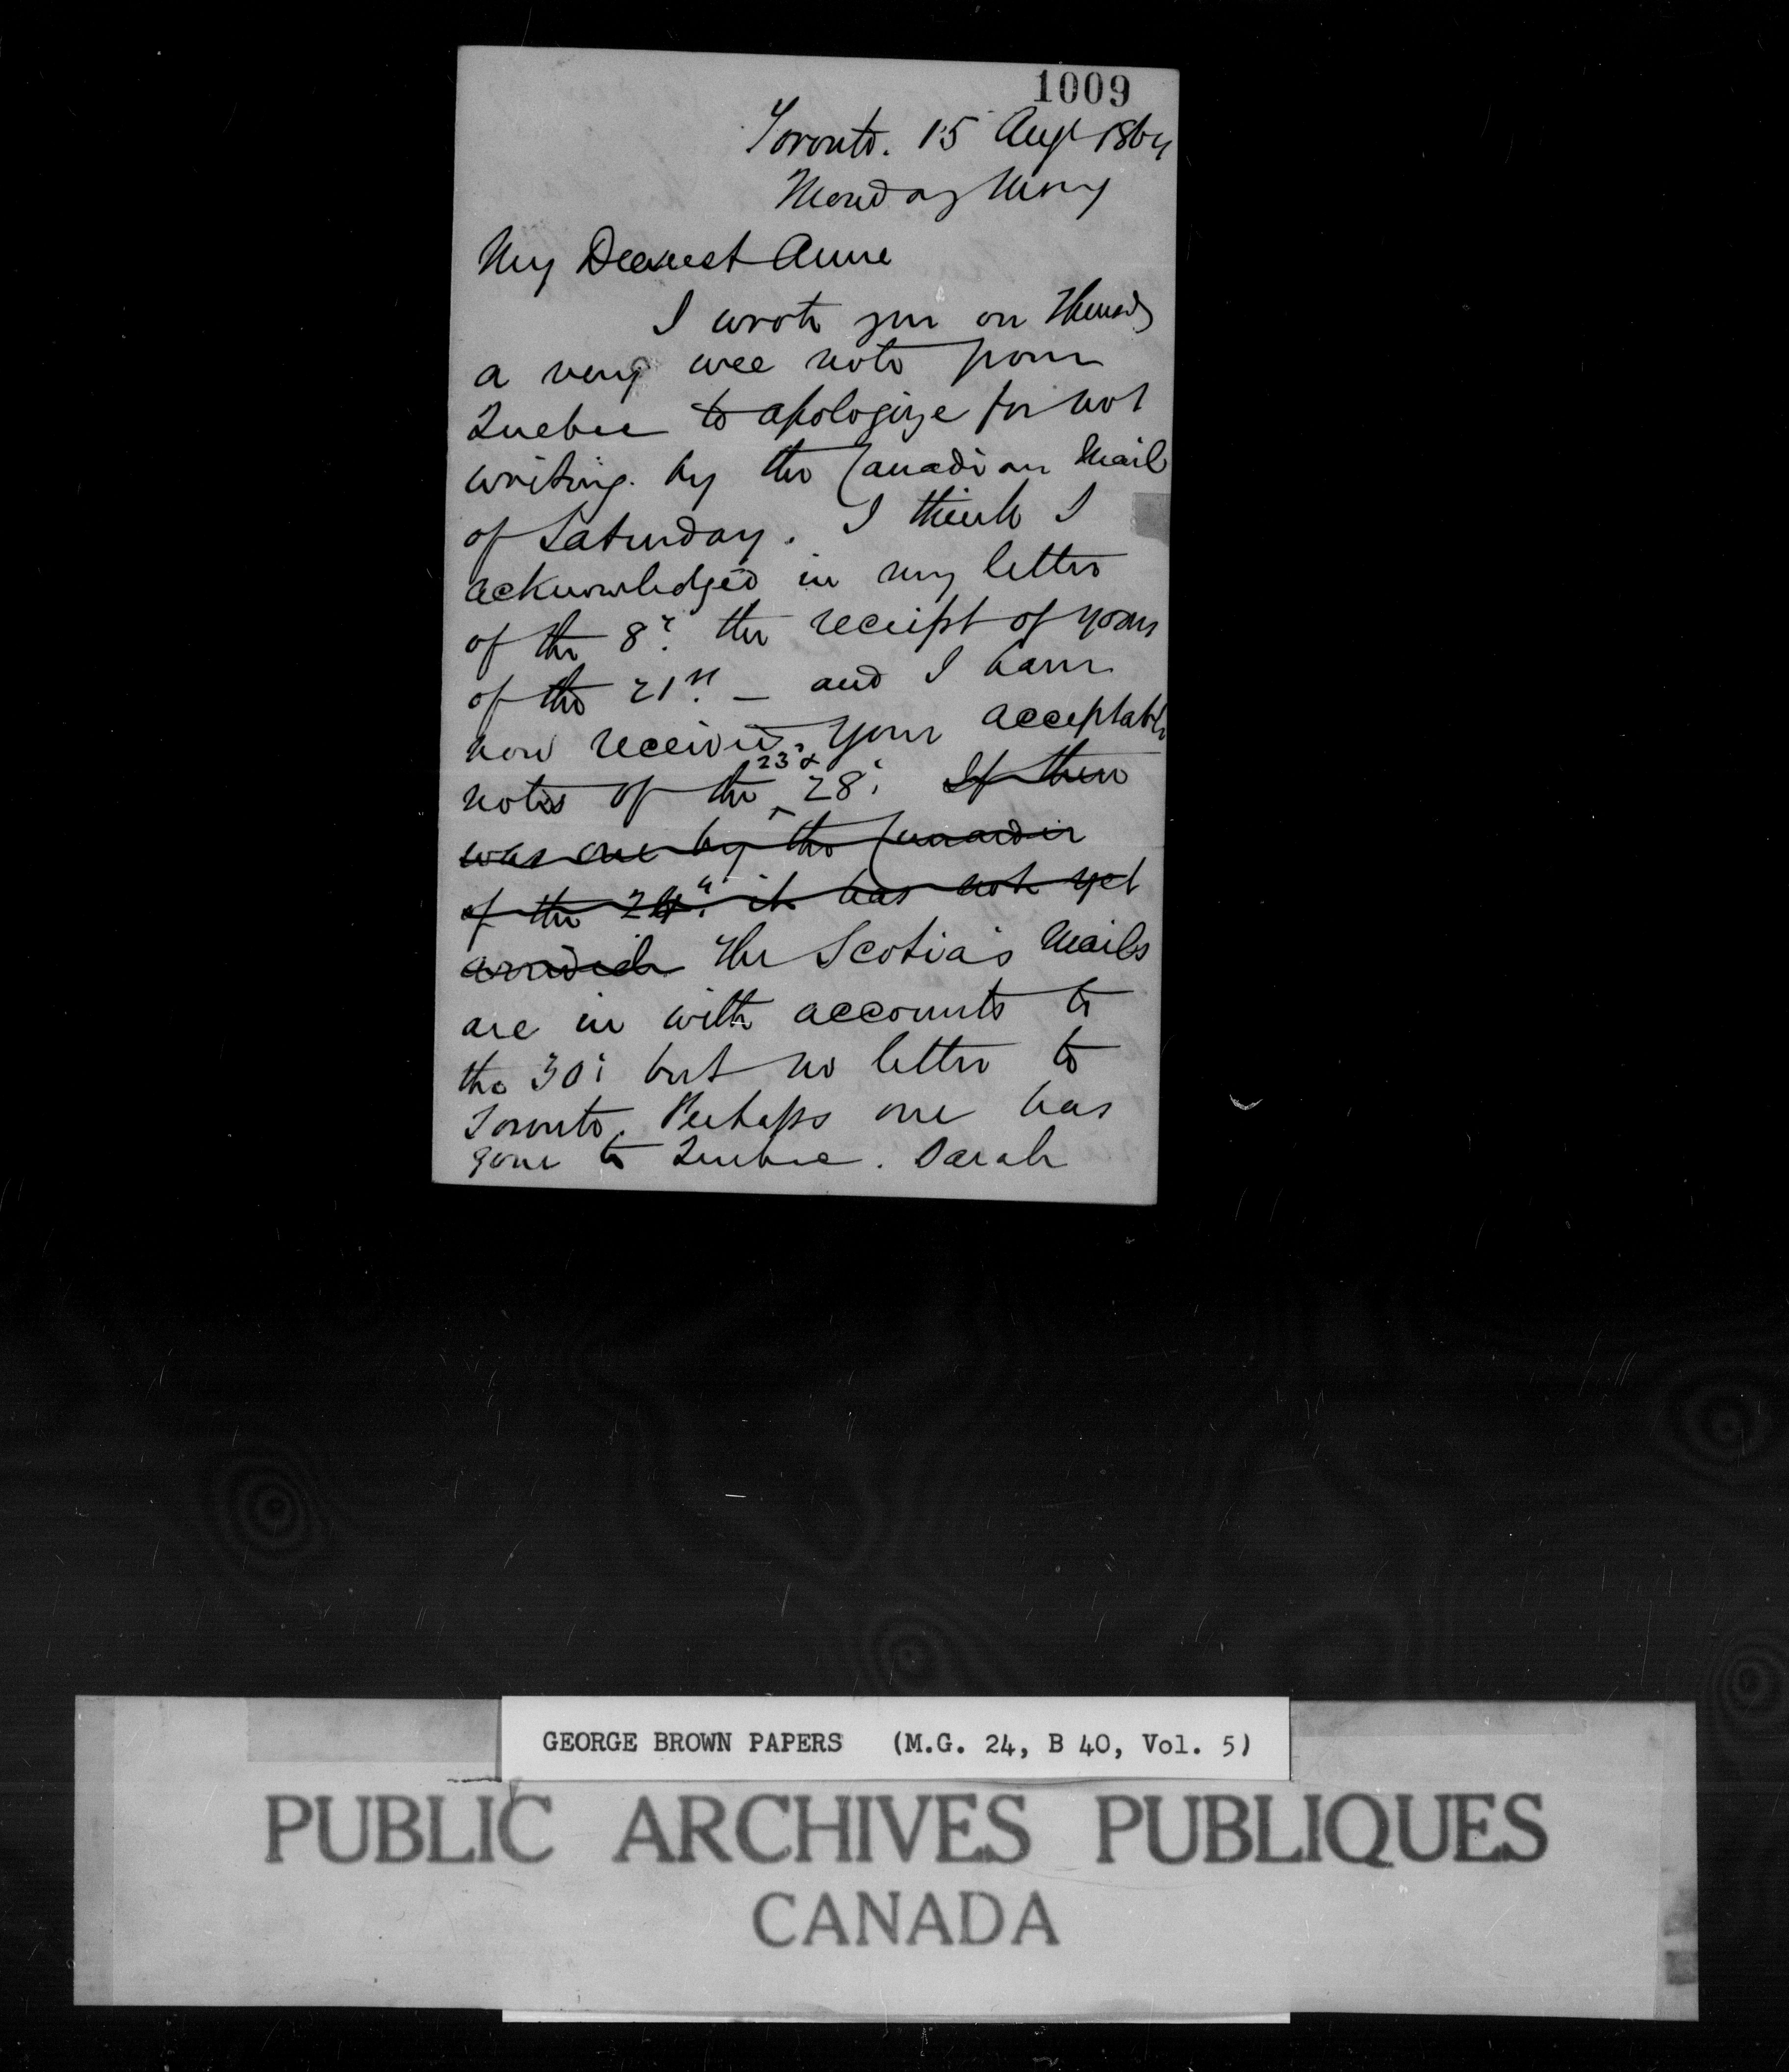 1009
Toronto. 15 Augt 1864
Monday Morng
My Dearest Anne
I wrote you on Thursdy
a very wee note from
Quebec to apologize for not
writing by the Canadian Mail
of Saturday. I think I
acknowledged in my letter
of the 8th the receipt of yours
of the 21st — and I have
now received your acceptable
notes of the 23d & 28th If there
was one by the Cunarder
of the 24th it has not yet
arrived The Scotia's Mails
are in with accounts to
the 30th but no letter to
Toronto. Perhaps one has
gone to Quebec. Sarah
GEORGE BROWN PAPERS (M.G. 24, B 40, Vol. 5)
PUBLIC ARCHIVES PUBLIQUES
CANADA